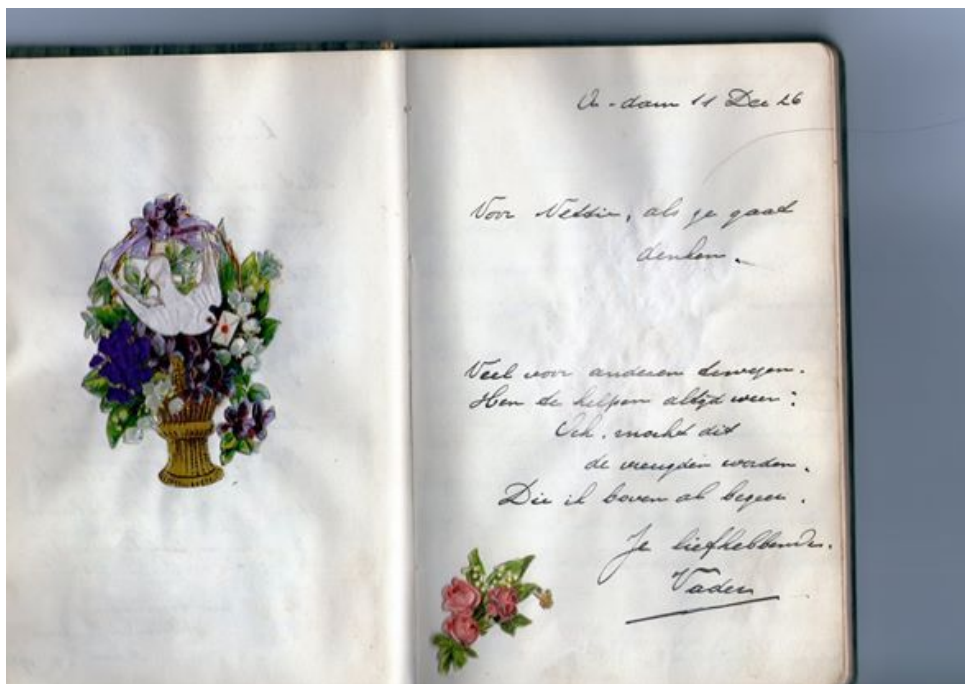 A-dam 11 Dec 26
Voor Nettie, als je gaat
denken.
Veel voor anderen
Hen te helpen altijd weer:
Och. mocht dit
de vreugden worden.
Die ik boven al begeer.
Je liefhebbende.
Vader